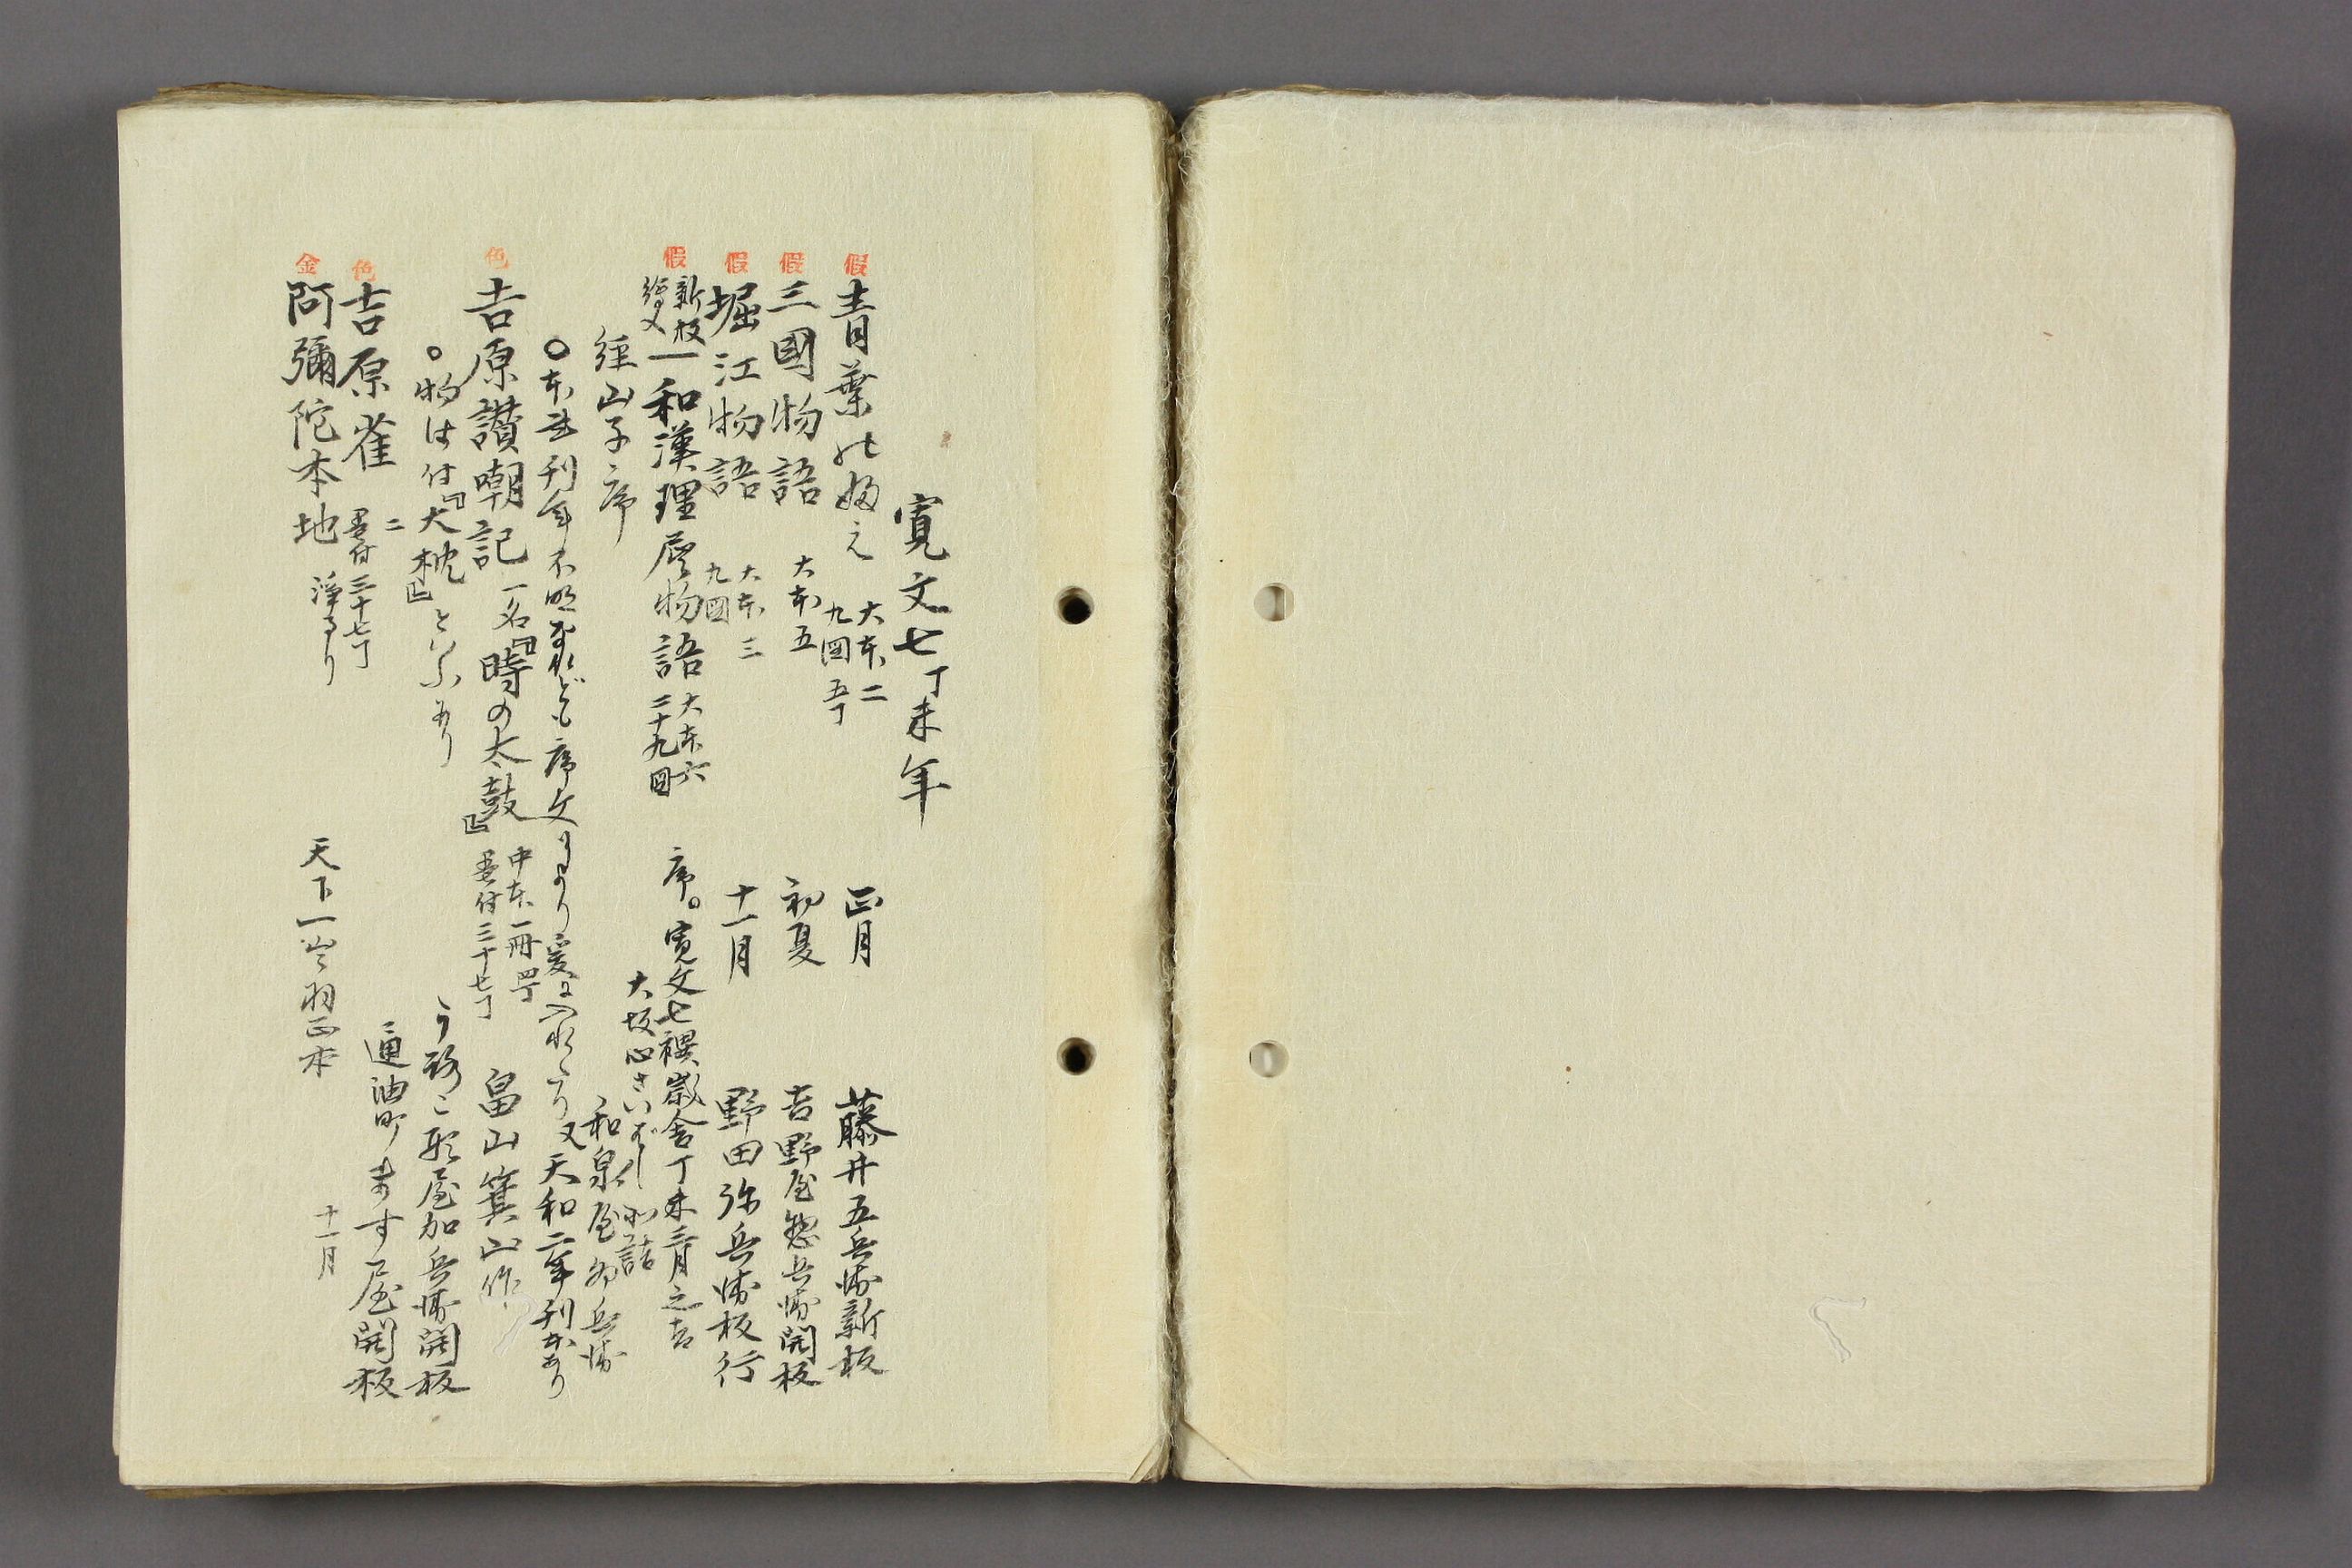 寛文七丁未年
假 青葉の婦え 大本二 九図 五丁 正月 藤井五兵衛新板
假 三國物語 大本五 初夏 吉野屋惣兵衛開板
假 堀江物語 大本三 九図 十一月 野田弥兵衛板行
假 新板 繪入 一和漢理屈物語 大本六 二十九図 序。寛文七禩歳舎丁未三月之吉
大坂心さいばし
經山子序 和泉屋 兵衛
〇本書刊年不明なれども序文により爰に入れたり又天和二年刊本あり
色 吉原讃嘲記 一名『時の太鼓』 中本一冊 墨付三十七丁 畠山箕山作
〇物は付『大枕』といふあり 屋加兵衛開板
色 吉原雀 二 墨付三十七丁 通油町ます屋開板
金 阿彌陀本地 浄るり 天下一 正本 十一月